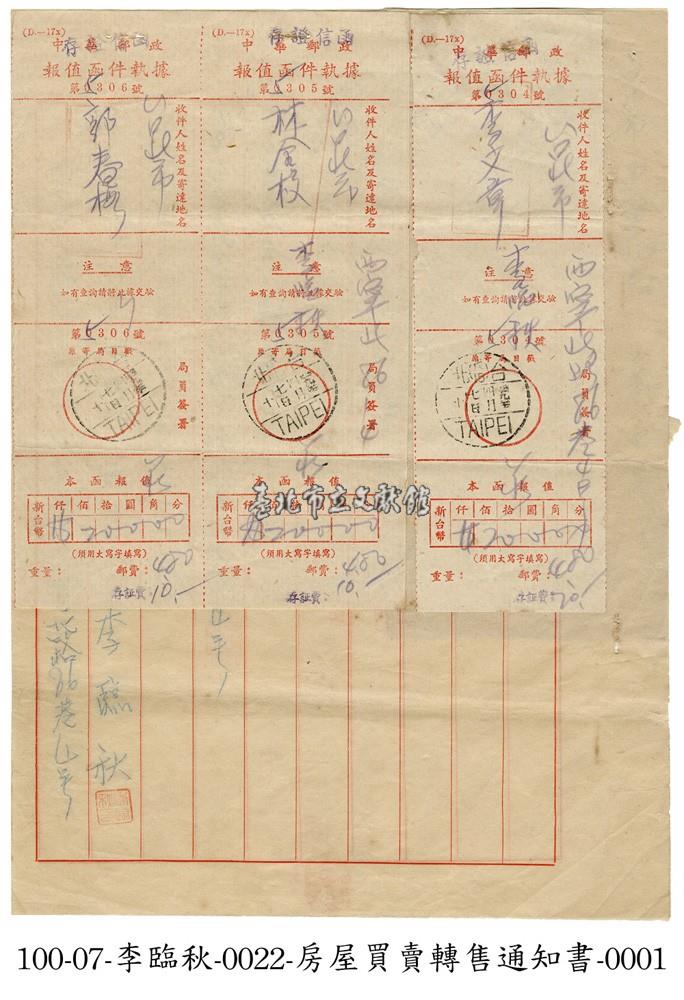 (D.—17x)
存證信函
中華郵政
報值函件執據
第5306號
收件人姓名及寄達地名
本市
郭春梅
注意
如有查詢請將此據交驗
第5306號
局員簽署
台北
TAIPEI
本函報值
新台幣
仟佰拾圓角分
20000
(須用大寫字填寫)
重量：
郵費：400
存証費：10.—
(D.—17x)
存證信函
中華郵政
報值函件執據
第5305號
收件人姓名及寄達地名
林金枝
注意
如有查詢請將此據交驗
李臨秋
西寧北路86巷4
第5305號
局員簽署
台北
TAIPEI
本函報值
新台幣
仟佰拾圓角分
20000
(須用大寫字填寫)
重量：
郵費：400
存証費：10.—
(D.—17x)
存證信函
中華郵政
報值函件執據
第5304號
收件人姓名及寄達地名
李文章
注意
如有查詢請將此據交驗
李臨秋
西寧北路86巷4號
第5304號
局員簽署
台北
TAIPEI
本函報值
新台幣
仟佰拾圓角分
20000
(須用大寫字填寫)
重量：
郵費：400
存証費：
臺北市立文獻館
李臨秋
北路86巷4號
100-07-李臨秋-0022-房屋買賣轉售通知書-0001